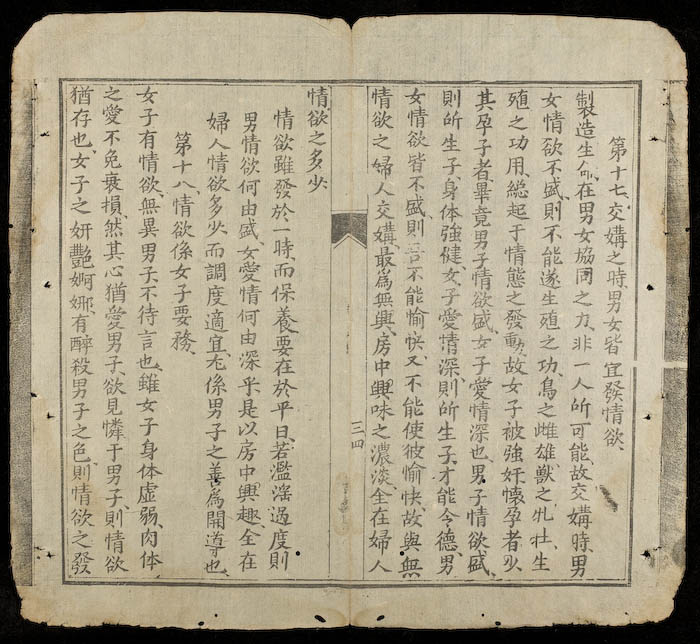 第十七、交媾之時、男女皆宜發情欲、
製造生命、在男女協同之力、非一人所可能、故交媾時、男
女情欲不盛、則不能遂生殖之功、鳥之雌雄、獸之牝牡、生
殖之功用、総起于情態之發動、故女子被強奸懷孕者少、
其孕子者、畢竟男子情欲盛、女子愛情深也、男子情欲盛、
則所生子、身体強健、女子愛情深、則所生子、才能令德、男
女情欲皆不盛、則吾不能愉快、又不能使彼愉快、故與無
情欲之婦人交媾、最為無興、房中興味之濃淡、全在婦人
情欲之多少、
三四
情欲雖發於一時、而保養要在於平日、若濫淫過度、則
男情欲何由盛、女愛情何由深乎、是以房中興趣、全在
婦人情欲多少、而調度適宜、尤係男子之善為開導也、
第十八、情欲係女子要務、
女子有情欲、無異男子、不待言也、雖女子身体虛弱、肉体
之愛不免衰損、然其心猶愛男子、欲見憐于男子、則情欲
猶存也、女子之妍艷婀娜、有醉殺男子之色、則情欲之發